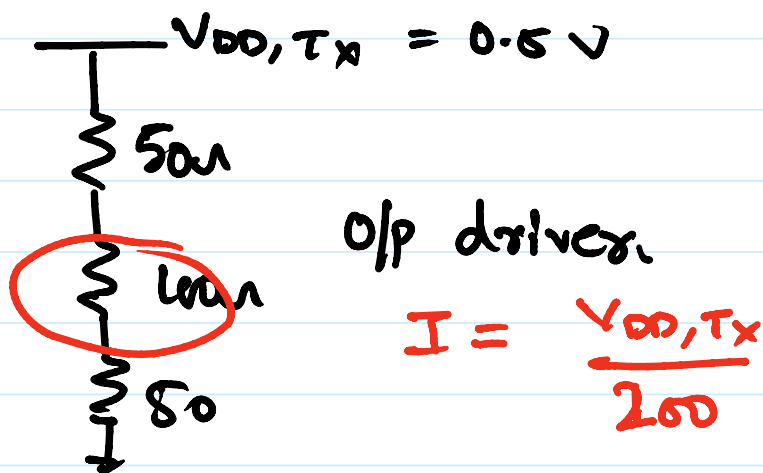 VDD, Tx = 0.5 V
50Ω
100Ω
O/P driver.
I = VDD, Tx
200
50